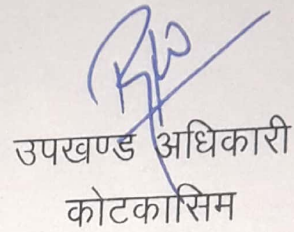 उपखण्ड अधिकारी
कोटकासिम